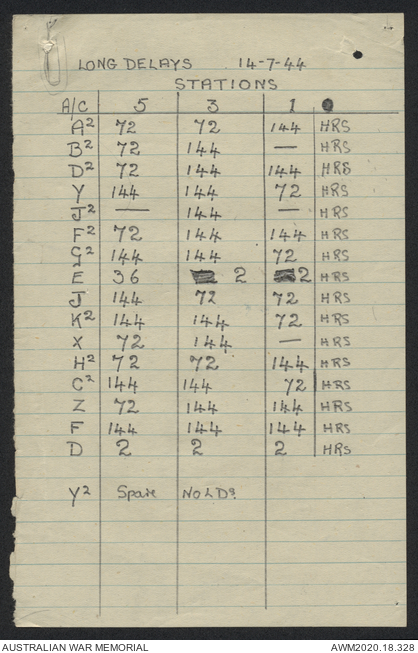 LONG DELAYS 14-7-44
STATIONS
A/C 5 3 1
A² 72 72 144 HRS
B² 72 144 — HRS
D² 72 144 144 HRS
Y 144 144 72 HRS
J² — 144 — HRS
F² 72 144 144 HRS
G² 144 144 72 HRS
E 36 2 2 HRS
J 144 72 72 HRS
K² 144 144 72 HRS
X 72 144 — HRS
H² 72 72 144 HRS
C² 144 144 72 HRS
Z 72 144 144 HRS
F 144 144 144 HRS
D 2 2 2 HRS
Y² Spare NO LDs.
AUSTRALIAN WAR MEMORIAL AWM2020.18.328